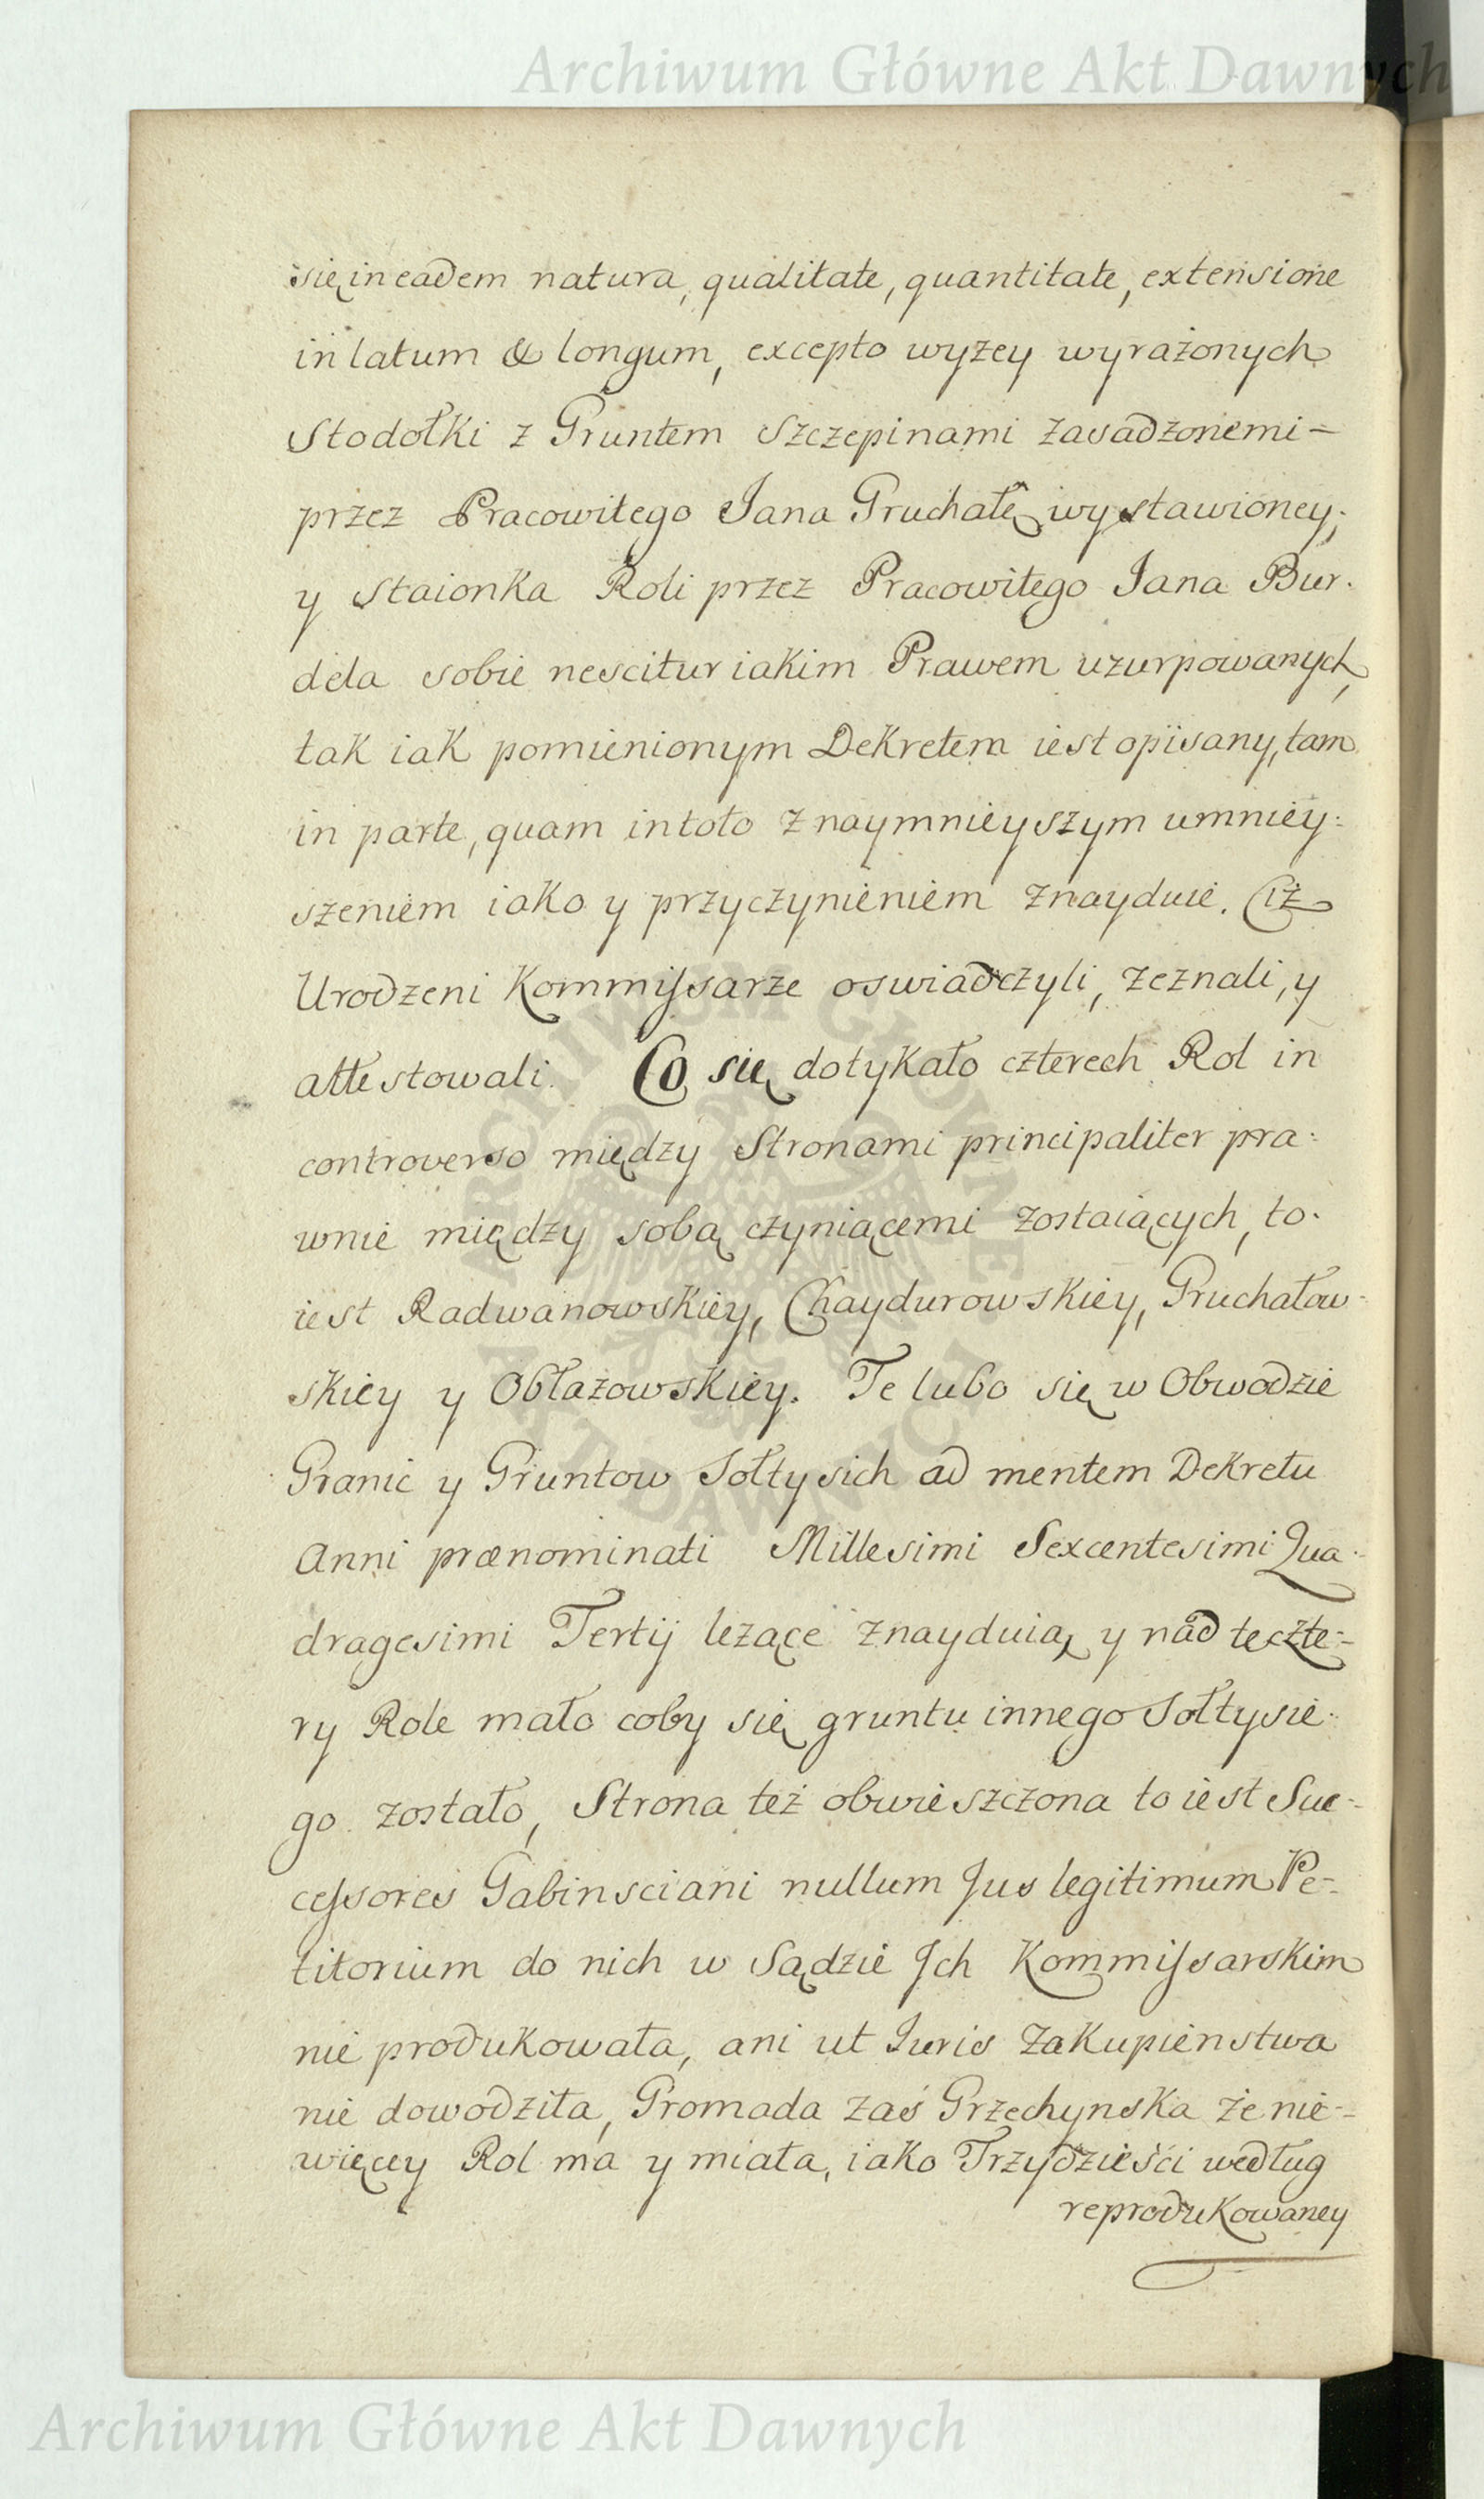 Archiwum Główne Akt Dawnych
się in eadem natura, qualitate, quantitate, extensione
in latum & longum, excepto wyzey wyrażonych
Stodołki z Gruntem Szczepinami zasadzonemi =
przez Pracowitego Jana Gruchałę wystawioney;
y Staionka Roli przez Pracowitego Jana Bur:
dela sobie nescitur iakim Prawem uzurpowanych,
tak iak pomienionym Dekretem iest opisany, tam
in parte, quam in toto z naymnieyszym umniey:
szeniem iako y przyczynieniem znayduie. Ciż
Urodzeni Kommissarze oswiadczyli, zeznali, y
attestowali. Co się dotykało czterech Rol in
controverso między Stronami principaliter pra:
wnie między sobą czyniącemi zostaiących, to:
iest Radwanowskiey, Chaydurowskiey, Gruchałow:
skiey y Obłazowskiey. Te lubo się w Obwodzie
Granic y Gruntow Sołtysich ad mentem Dekretu
Anni prænominati Millesimi Sexcentesimi Qua:
dragesimi Tertij leżące znayduią y nad te czte:
ry Role mało coby się gruntu innego Sołtysie:
go zostało, Strona też obwieszczona to iest Suc:
cessores Gabinsciani nullum Jus legitimum Pe:
titorium do nich w Sądzie Jch Kommissarskim
nie produkowała, ani ut Juris Zakupieństwa
nie dowodziła, Gromada zaś Grzechynska że nie=
więcey Rol ma y miała, iako Trzydzieści według
reprodukowaney
ARCHIWUM GŁÓWNE AKT DAWNYCH
Archiwum Główne Akt Dawnych